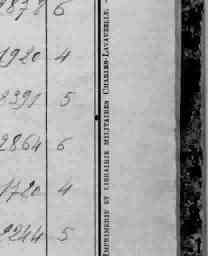 1920 4
2391 5
2864 6
1720 4
2244 5
IMPRIMERIE ET LIBRAIRIE MILITAIRES CHARLES-LAVAUZELLE. —